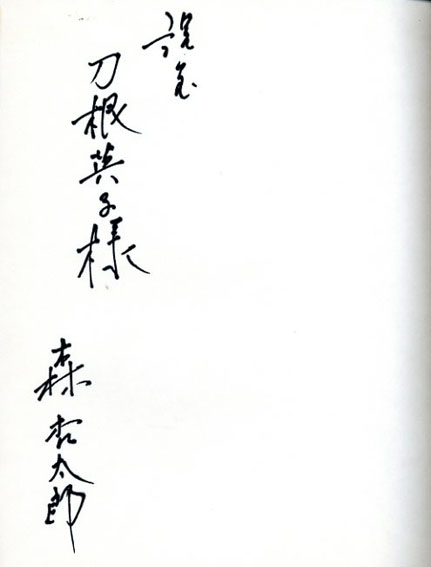 謹呈
刀根英子様
森杏太郎